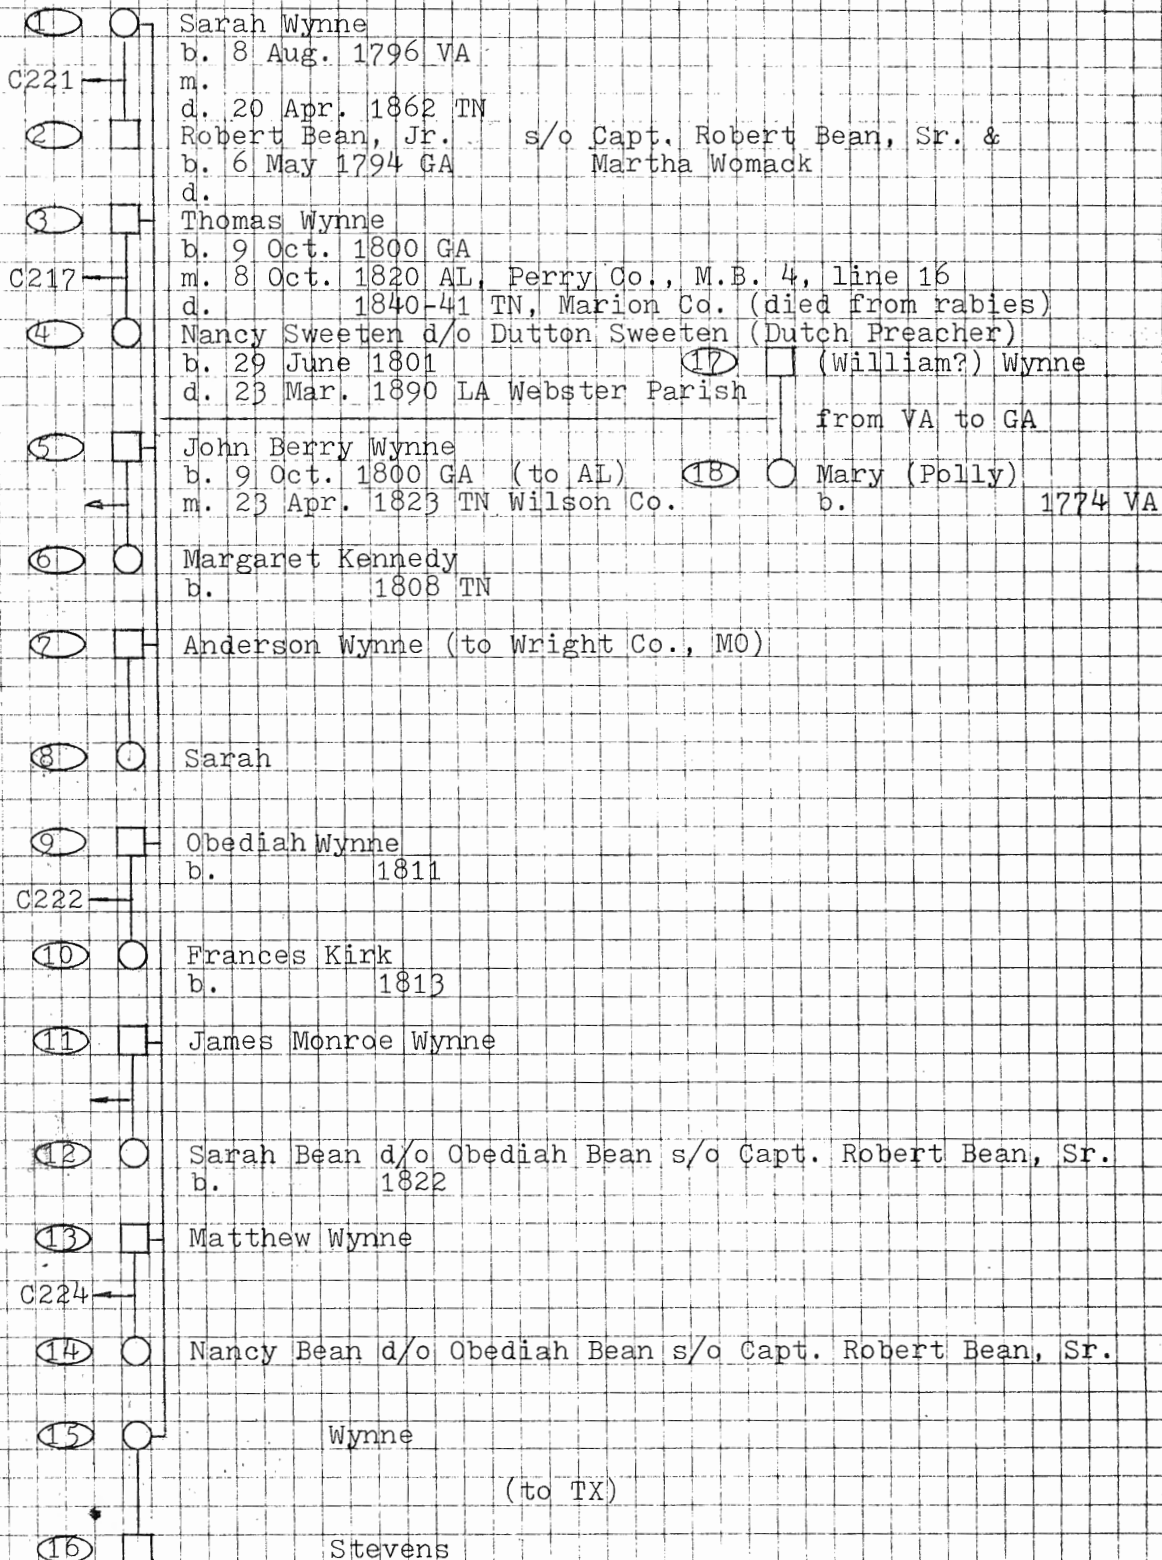 1 Sarah Wynne
b. 8 Aug. 1796 VA
C221 m.
d. 20 Apr. 1862 TN
2 Robert Bean, Jr. s/o Capt. Robert Bean, Sr. &
b. 6 May 1794 GA Martha Womack
d.
3 Thomas Wynne
b. 9 Oct. 1800 GA
C217 m. 8 Oct. 1820 AL, Perry Co., M.B. 4, line 16
d. 1840-41 TN, Marion Co. (died from rabies)
4 Nancy Sweeten d/o Dutton Sweeten (Dutch Preacher)
b. 29 June 1801 17 (William?) Wynne
d. 23 Mar. 1890 LA Webster Parish
from VA to GA
5 John Berry Wynne
b. 9 Oct. 1800 GA (to AL) 18 Mary (Polly)
m. 23 Apr. 1823 TN Wilson Co. b. 1774 VA
6 Margaret Kennedy
b. 1808 TN
7 Anderson Wynne (to Wright Co., MO)
8 Sarah
9 Obediah Wynne
b. 1811
C222
10 Frances Kirk
b. 1813
11 James Monroe Wynne
12 Sarah Bean d/o Obediah Bean s/o Capt. Robert Bean, Sr.
b. 1822
13 Matthew Wynne
C224
14 Nancy Bean d/o Obediah Bean s/o Capt. Robert Bean, Sr.
15 Wynne
(to TX)
16 Stevens